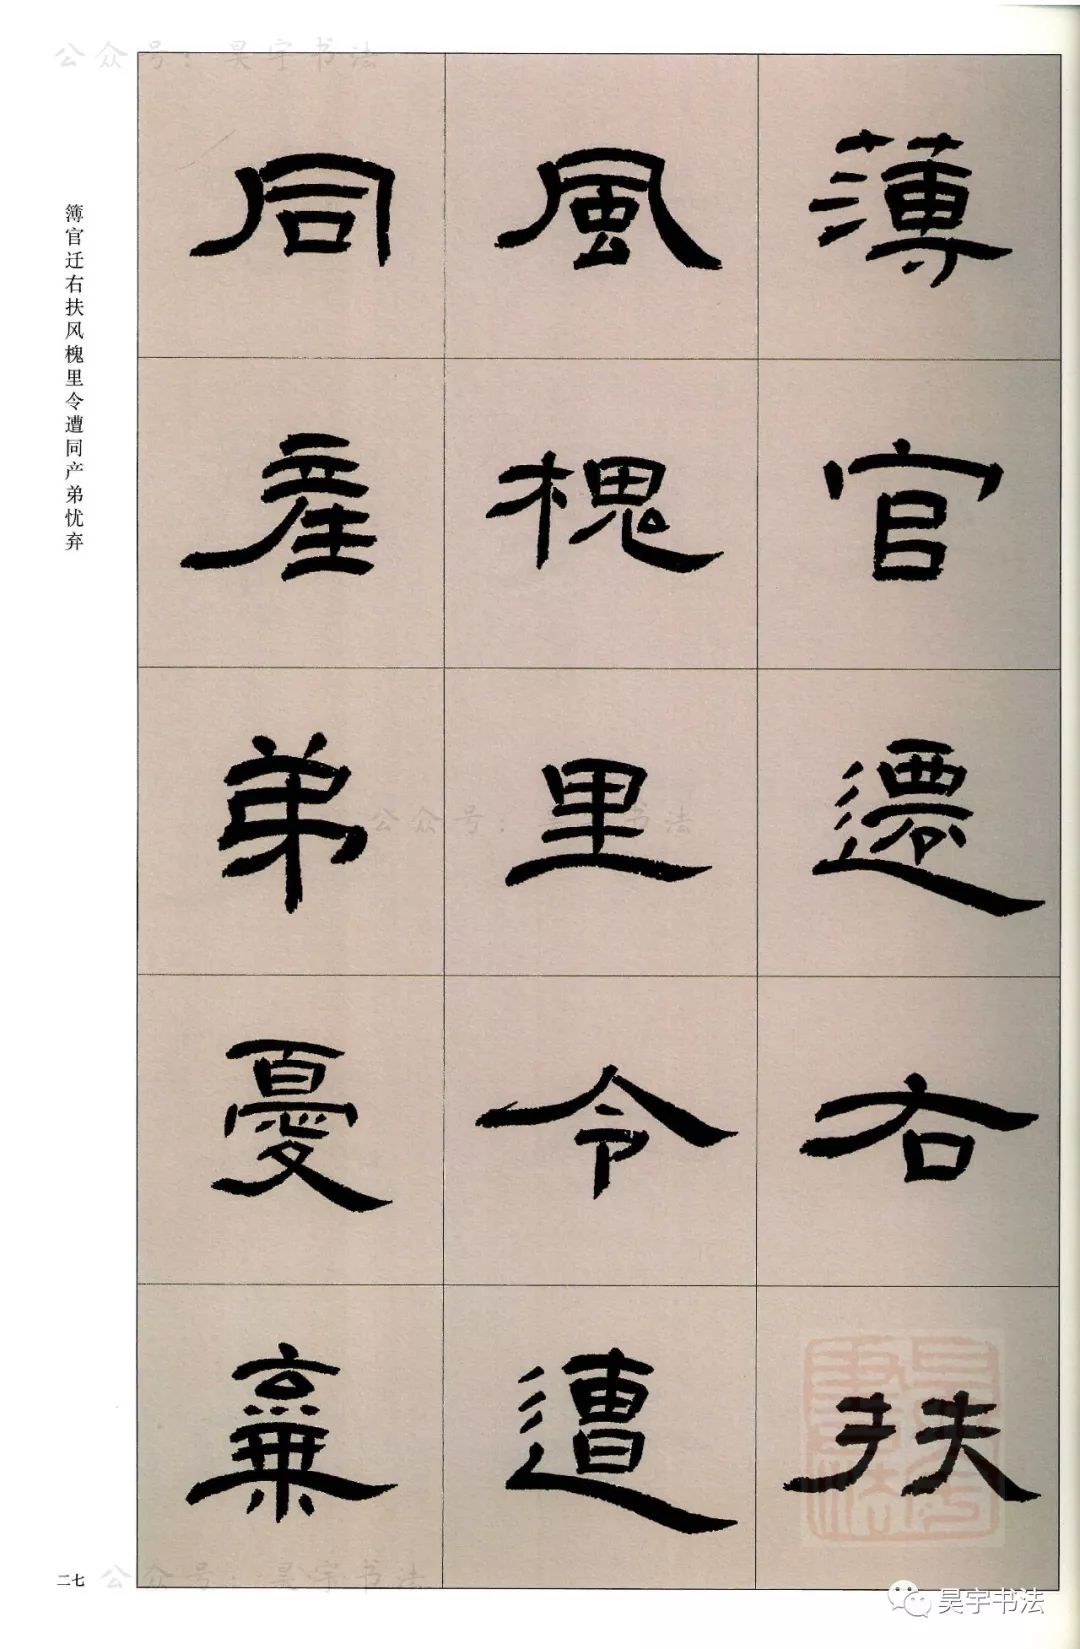 公众号：昊宇书法
薄官遷右扶
風槐里令遭
同產弟憂棄
簿官迁右扶风槐里令遭同产弟忧弃
公众号：昊宇书法
二七
公众号：昊宇书法
昊宇书法